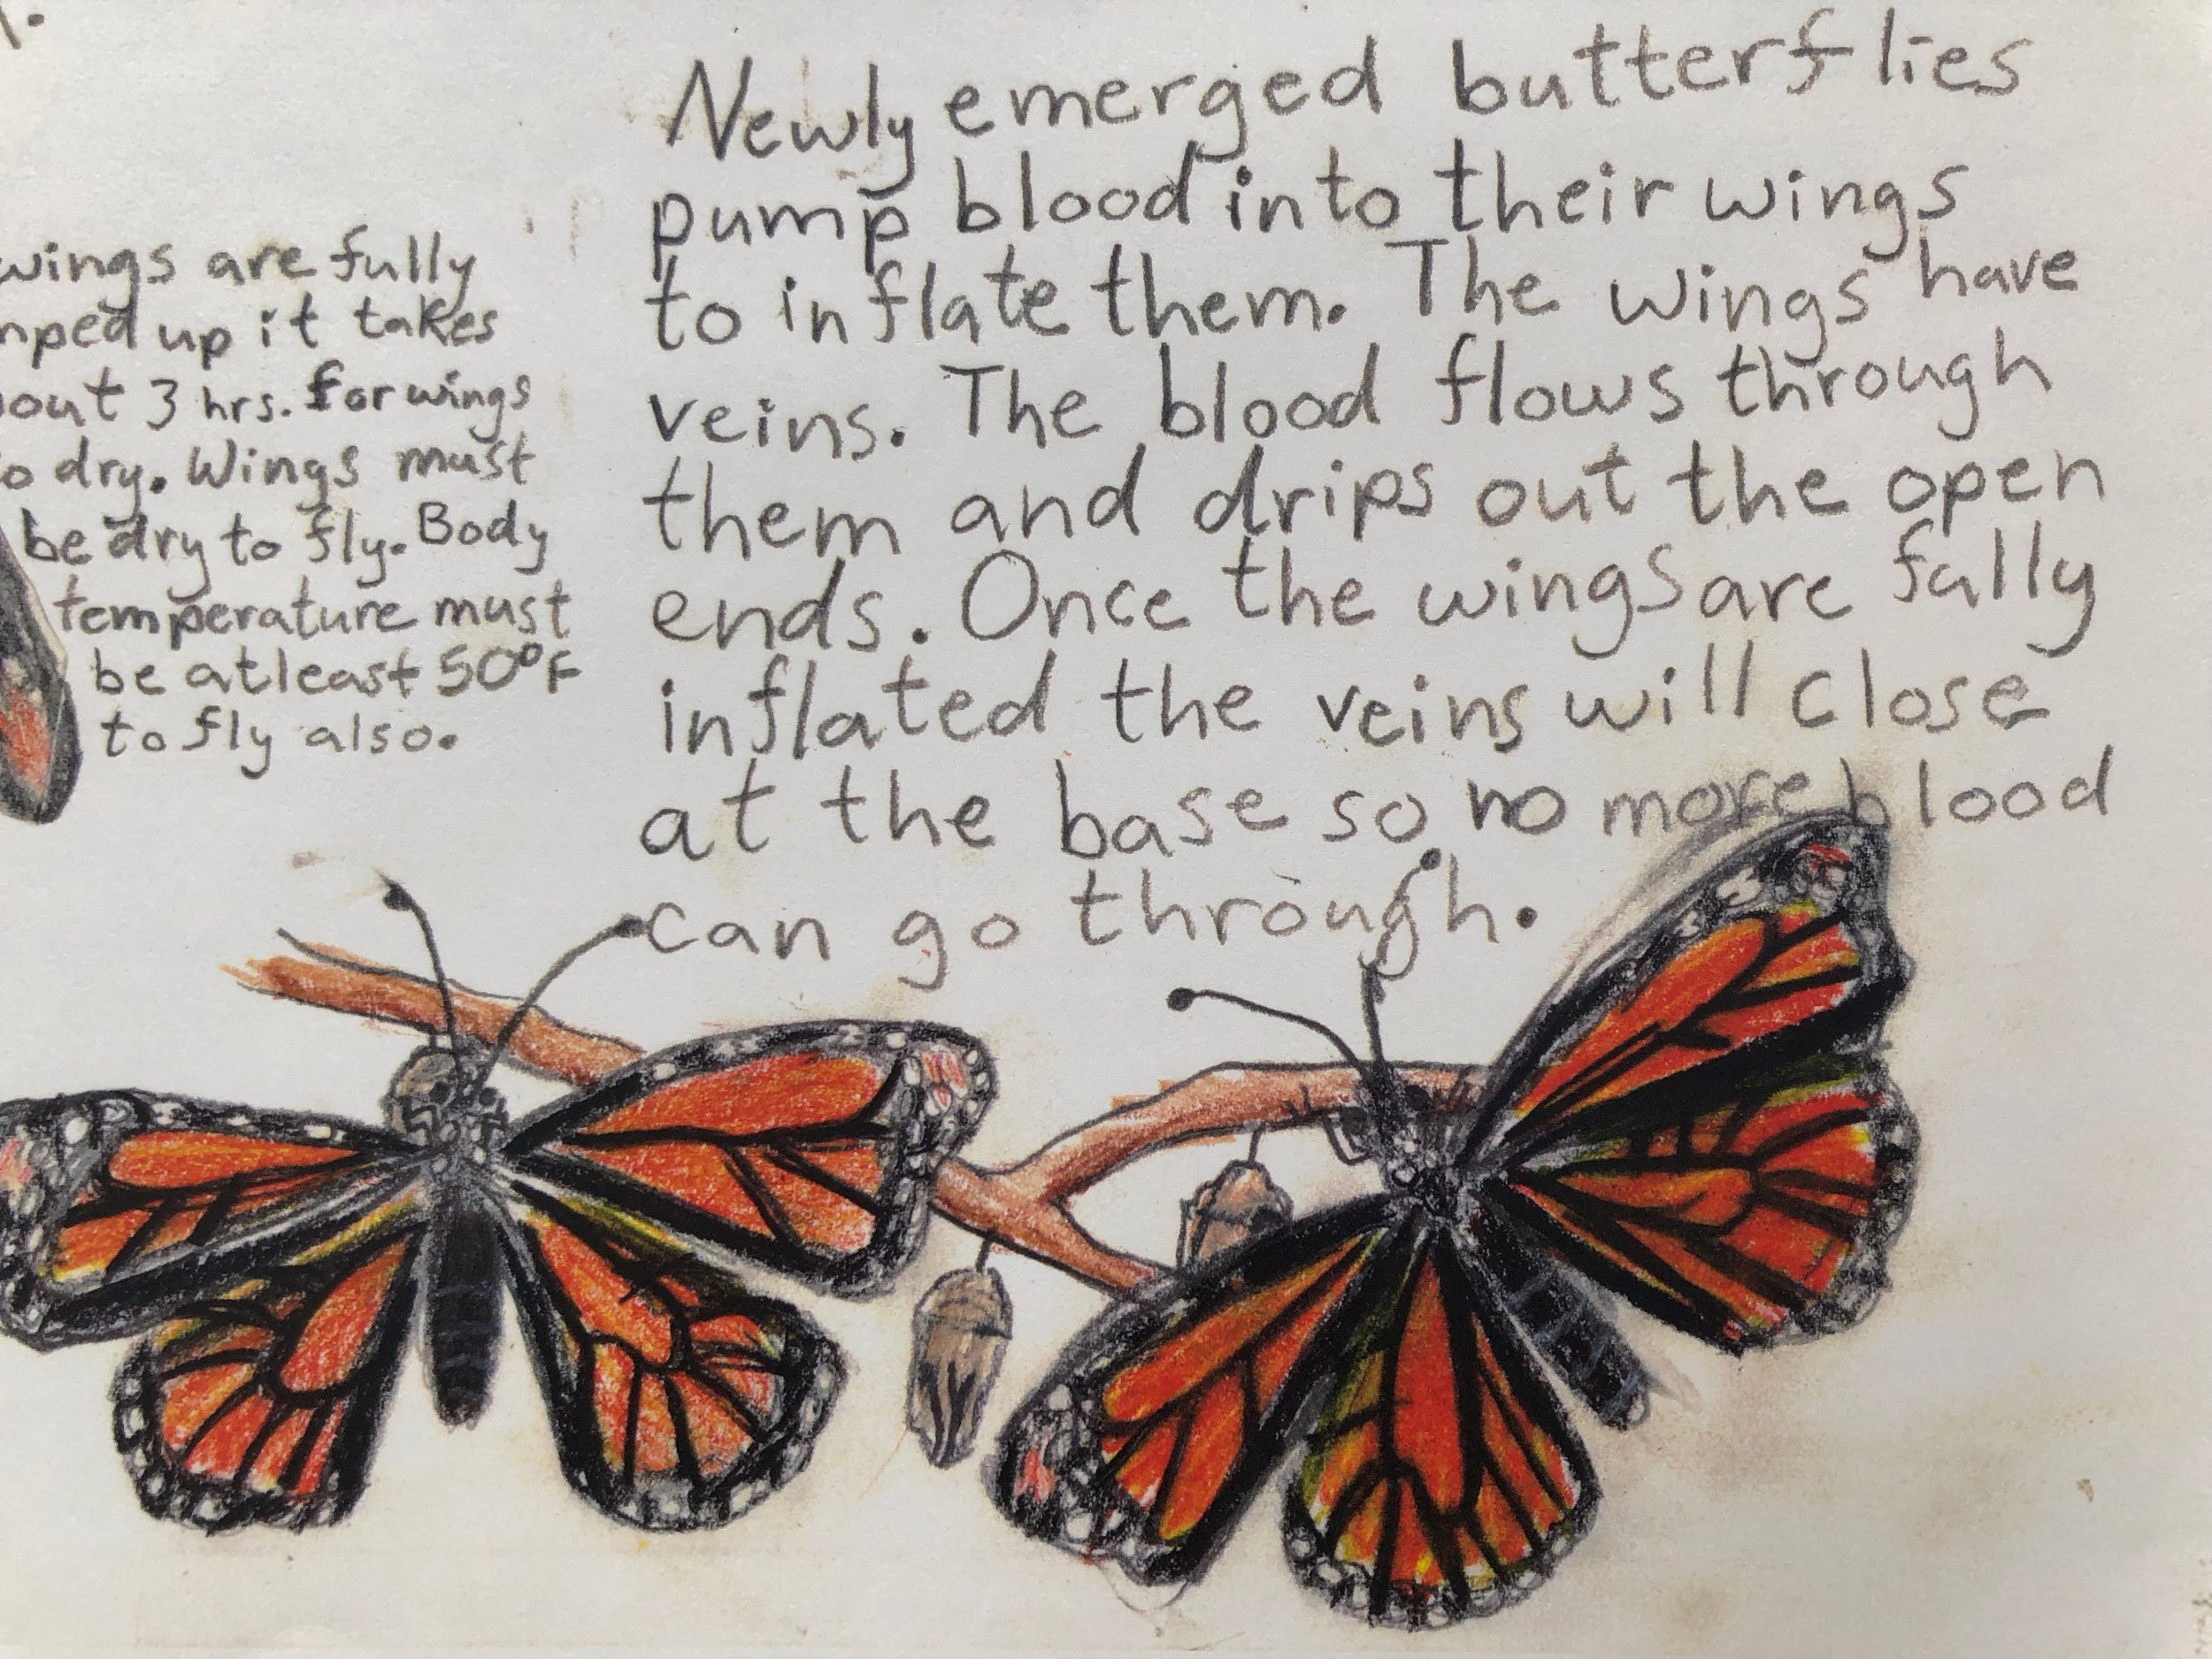 wings are fully
up it takes
3 hrs. for wings
dry. Wings must
be dry to fly. Body
temperature must
be atleast 50°F
to fly also.
Newly emerged butterflies
pump blood into their wings
to inflate them. The wings have
veins. The blood flows through
them and drips out the open
ends. Once the wings are fully
inflated the veins will close
at the base so no more blood
can go through.